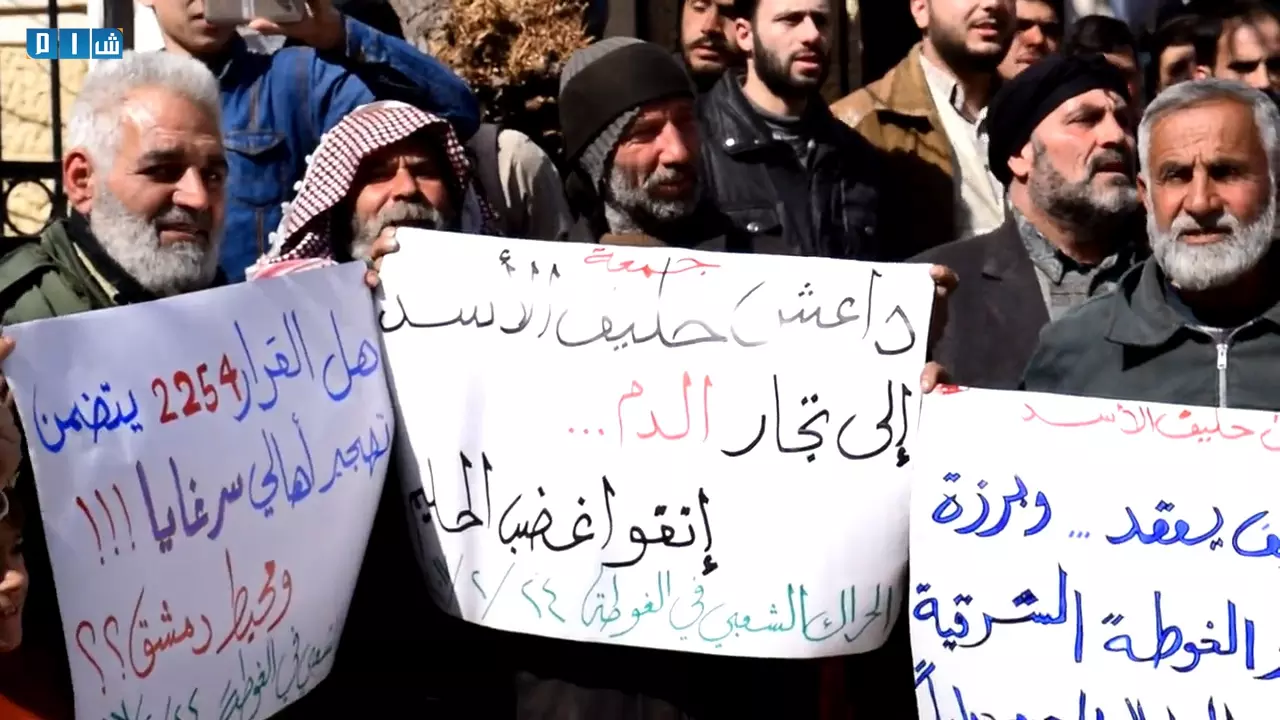 شام
جمعة
داعش حليف الأسد
إلى تجار الدم...
إتقوا غضب الحليم
الحراك الشعبي في الغوطة ٢٤/٢/
هل القرار 2254 يتضمن
تهجير أهالي سرغايا!!!
ومحيط دمشق؟؟
في الغوطة
حليف الأسد
يعقد... وبرزة
الغوطة الشرقية